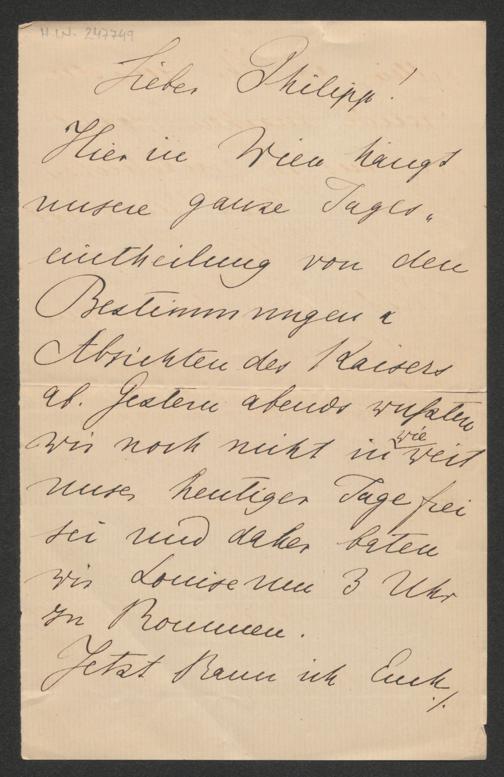 H.I.N. 247749
Lieber Philipp!
Hier in Wien hängt
unsere ganze Tages„
eintheilung von den
Bestimmungen &
Absichten des Kaisers
ab. Gestern abends wußten
wir noch nicht in wie weit
unser heutiger Tage frei
sei und daher baten
wir Louise um 3 Uhr
zu kommen.
Jetzt kann ich Euch
./.